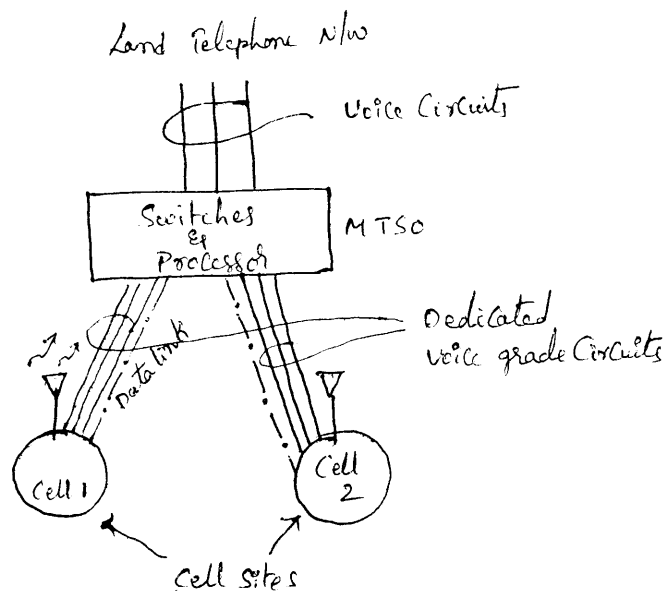 Land Telephone N/W
Voice Circuits
Switches
&
Processor
MTSO
Dedicated
Voice grade Circuits
Data link
Cell 1
Cell
2
Cell Sites